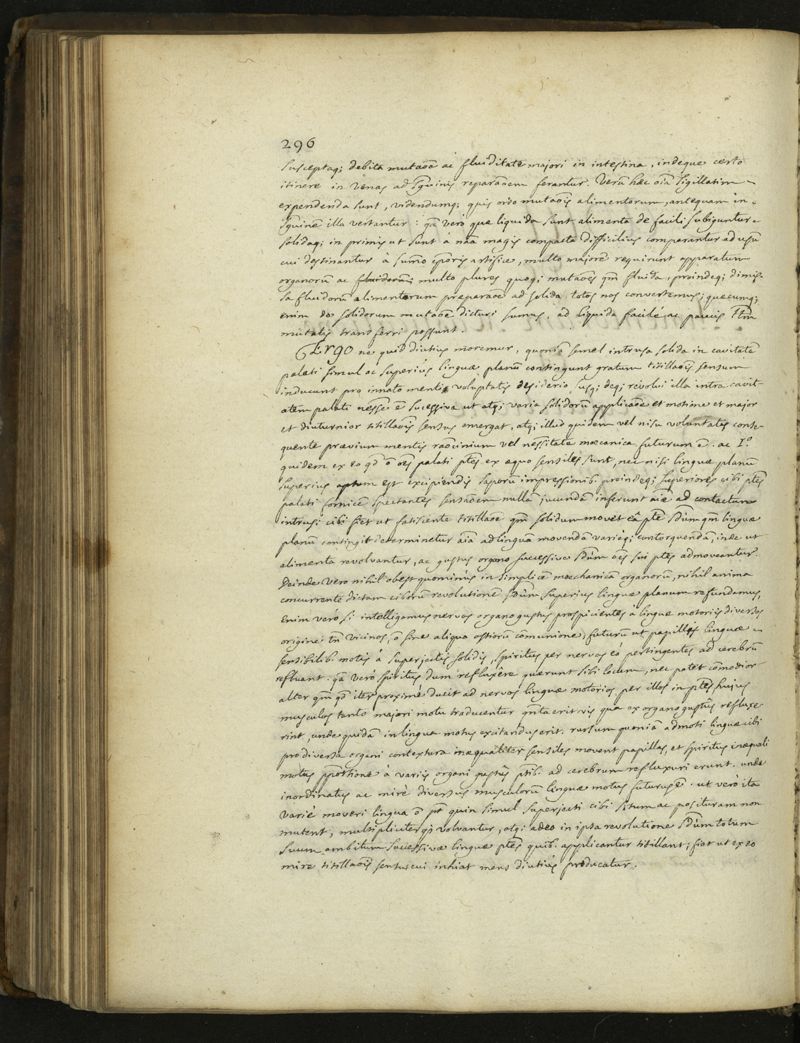 296
susceptaq; debita mutaõe ac fluiditate majori in intestina, indeque certo
itinere in venas ad sguinis reparaõem ferantur. Verũ hæc oĩa sigillatim
expendenda sunt, videndumq; quis ordo mutaõis alimentorum, antequam in
sguinẽ illa vertantur: qã vero quæ liquida sunt alimenta de facili subiguntur
solidaq; in primis ut sunt à nãa magis compacta difficilius comparantur ad usũ
cui destinantur à sum̃o corporis artifice, multo majorẽ requirunt apparatum
organorũ ac multo plures quoq; mutaões qm̃ fluida, proindeq; dimis
sa fluidorũ alimentorum præparaõe ad solida totos nos convertemus; quæcumq;
enim de solidorum mutaõe dicturi sumus, ad liquida facilè ac paucis
mutatis transferri possunt.
Ergo ne quid diutius moremur, quoniã semel intrusa solida in cavitatẽ
palati simul ac superius linguæ planũ contingunt gratum titillaõis sensum
inducunt pro innato mentis voluptatis desiderio susq; deq; revolvi illa intra cavit
atem palati nesse ẽ sucessiva ut atq; varia solidorũ applicaõe et motione et major
et diuturnior titillaõis sensus emergat, atq; illud quidem vel nisu voluntatis conse
quente prævium mentis raõcinium vel nessitate mæcanica futurum ẽ. ac Iº
quidem ex eo qd õ oẽs palati ptẽs ex æquo sensiles sunt, nec nisi linguæ planũ
superius aptum est excipiendis saporũ impressionib. proindeq; superiores cibi ptẽs
palati fornicẽ spectantes sensaõem nullã jucundã inferunt ad contactum
intrusi cibi fiet ut fatiscente titillaõe qm̃ solidum movet eã ptẽ qm̃ linguæ
planũ contingit determinetur aĩa ad linguã movendã variéq; contorquendã, inde ut
alimenta revolvantur, ac gustus organo sucessive oẽs sui ptẽs admoveantur.
Deinde vero nihil obest quominus in simplicẽ mechanicã organorũ, nihil anima
concurrente dictam ciborũ revolutionẽ superius linguæ planum refundamus,
enim verò si intelligamus nervos organo gustus prospicientes a linguæ motoriis diversos
origine tñ vicinos, õ sine aliqua ostiorũ comunione, futurũ ut papillis linguæ
sensibilib. motis à superjectis solidis, spiritus per nervos eò pertingentes ad cerebrũ
refluant. qã verò spiritus dum refluxere quærunt sibi locum, nec patet com̃odior
alter qm̃ qi iter proxime ducit ad nervos linguæ motorios, per illos in ptẽs hujus
musculos tanto majori motu traducentur qm̃ta erit vis qua ex organo gustus refluxe
rint, unde quidã in lingua motus excitandus erit. rursum quoniã admoti linguæ cibi
pro diversa organi contextura inæqualiter sensiles movent papillas, et spiritus inæquali
motus pportione à variis organi gustus ptib. ad cerebrum refluxuri erunt. unde
inordinatus ac mirè diversus musculorũ linguæ motus futurus ẽ. ut verò ita
variè moveri lingua õ pt quin simul superjecti cibi situm ac posituram non
mutent, multiplicitesq; volvantur, atq; adeo in ipsa revolutione totum
suum ambitum sucessivæ linguæ ptẽs quib. applicantur titillant, fiat ut ex eo
mirè titillaõis sensus cui inhiat mens diutius producatur.